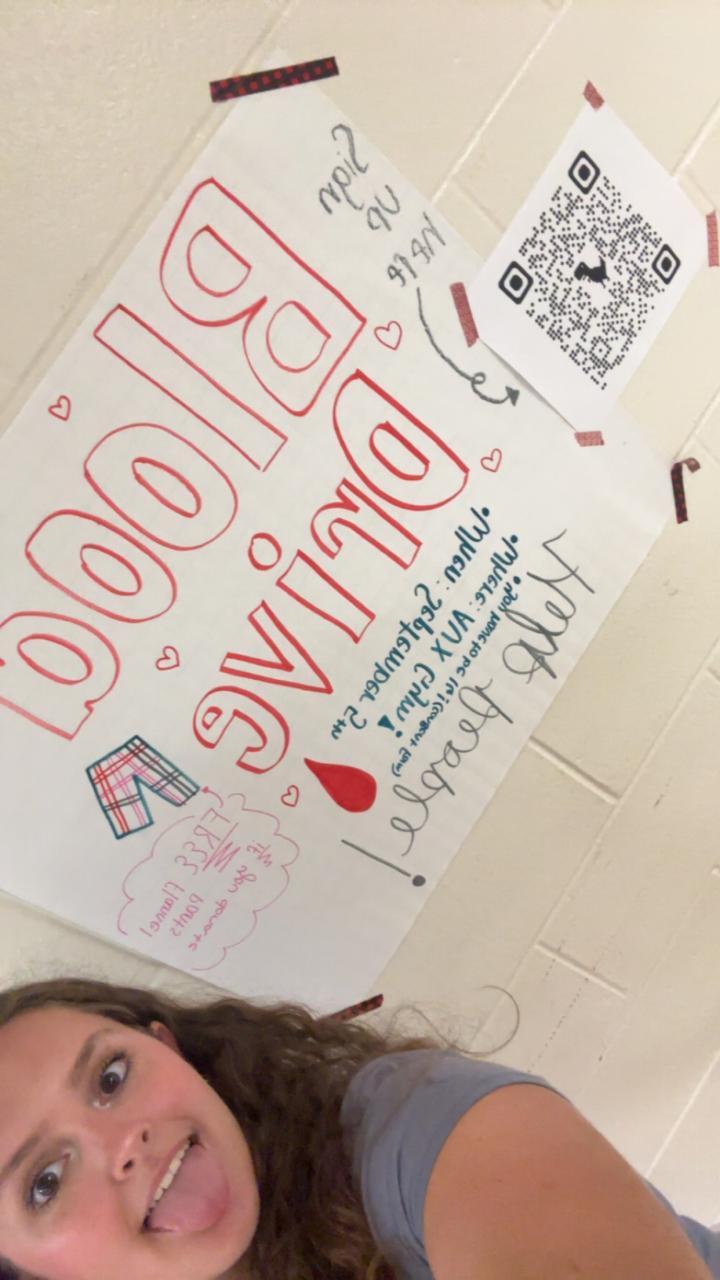 Blood
Drive
Sign
up
here
• When: September 5th
• Where: AUX Gym!
• You have to be 16! (consent form)
Help people!
FREE Flannel
pants
if you donate